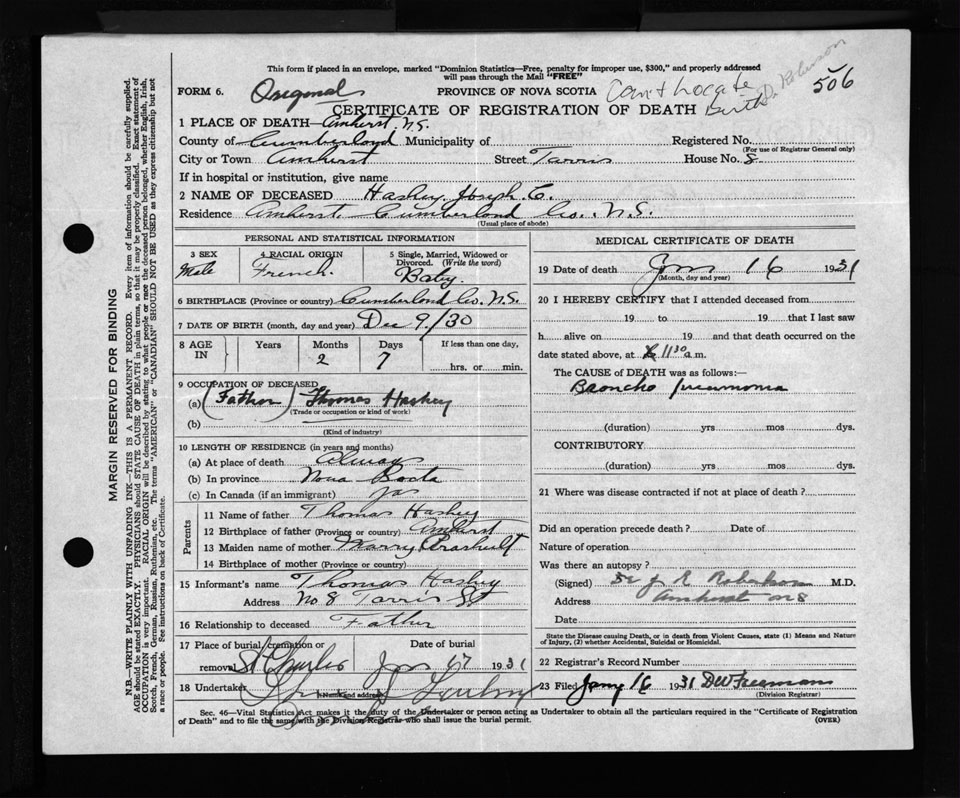 This form if placed in an envelope, marked "Dominion Statistics—Free, penalty for improper use, $300," and properly addressed
will pass through the Mail "FREE"
506
FORM 6. Original PROVINCE OF NOVA SCOTIA Can't Locate
CERTIFICATE OF REGISTRATION OF DEATH Birth
1 PLACE OF DEATH—Amherst, N.S.
County of Cumberland Municipality of Registered No.
(For use of Registrar General only)
City or Town Amherst Street Tarris House No. 8
If in hospital or institution, give name
2 NAME OF DECEASED Hashey Joseph C.
Residence Amherst, Cumberland Co. N.S.
(Usual place of abode)
PERSONAL AND STATISTICAL INFORMATION
3 SEX 4 RACIAL ORIGIN 5 Single, Married, Widowed or Divorced. (Write the word)
Male French. Baby.
6 BIRTHPLACE (Province or country) Cumberland Co. N.S.
7 DATE OF BIRTH (month, day and year) Dec 9./30
8 AGE IN Years Months Days If less than one day,
2 7 hrs. or min.
9 OCCUPATION OF DECEASED
(a) (Father) Thomas Hashey
(Trade or occupation or kind of work)
(b)
(Kind of industry)
10 LENGTH OF RESIDENCE (in years and months)
(a) At place of death Always
(b) In province Nova Scotia
(c) In Canada (if an immigrant) yes
Parents
11 Name of father Thomas Hashey
12 Birthplace of father (Province or country) Amherst
13 Maiden name of mother
14 Birthplace of mother (Province or country)
15 Informant's name Thomas Hashey
Address No 8 Tarris St
16 Relationship to deceased Father
17 Place of burial, cremation or removal St Charles Date of burial Jan 17 1931
18 Undertaker
(Name and address)
MEDICAL CERTIFICATE OF DEATH
19 Date of death Jan 16 1931
(Month, day and year)
20 I HEREBY CERTIFY that I attended deceased from
19 to 19 that I last saw
h alive on 19 and that death occurred on the
date stated above, at 11 30 a.m.
The CAUSE of DEATH was as follows:—
Broncho Pneumonia
(duration) yrs mos dys.
CONTRIBUTORY
(duration) yrs mos dys.
21 Where was disease contracted if not at place of death?
Did an operation precede death? Date of
Nature of operation
Was there an autopsy?
(Signed) Dr J E Robertson M.D.
Address Amherst NS
Date
State the Disease causing Death, or in death from Violent Causes, state (1) Means and Nature
of Injury, (2) whether Accidental, Suicidal or Homicidal.
22 Registrar's Record Number
23 Filed Jany 16 1931 DW Freeman
(Division Registrar)
Sec. 46—Vital Statistics Act makes it the duty of the Undertaker or person acting as Undertaker to obtain all the particulars required in the "Certificate of Registration
of Death" and to file the same with the Division Registrar who shall issue the burial permit. (OVER)
MARGIN RESERVED FOR BINDING
N.B.—WRITE PLAINLY WITH UNFADING INK—THIS IS A PERMANENT RECORD. Every item of information should be carefully supplied.
AGE should be stated EXACTLY. PHYSICIANS should STATE CAUSE OF DEATH in plain terms, so that it may be properly classified. Exact statement of
OCCUPATION is very important. RACIAL ORIGIN will be described by stating to what people or race the deceased person belonged, whether English, Irish,
Scotch, French, German, Russian, Ruthenian, etc. The terms "AMERICAN" or "CANADIAN" SHOULD NOT BE USED as they express citizenship but not
a race or people. See instructions on back of Certificate.